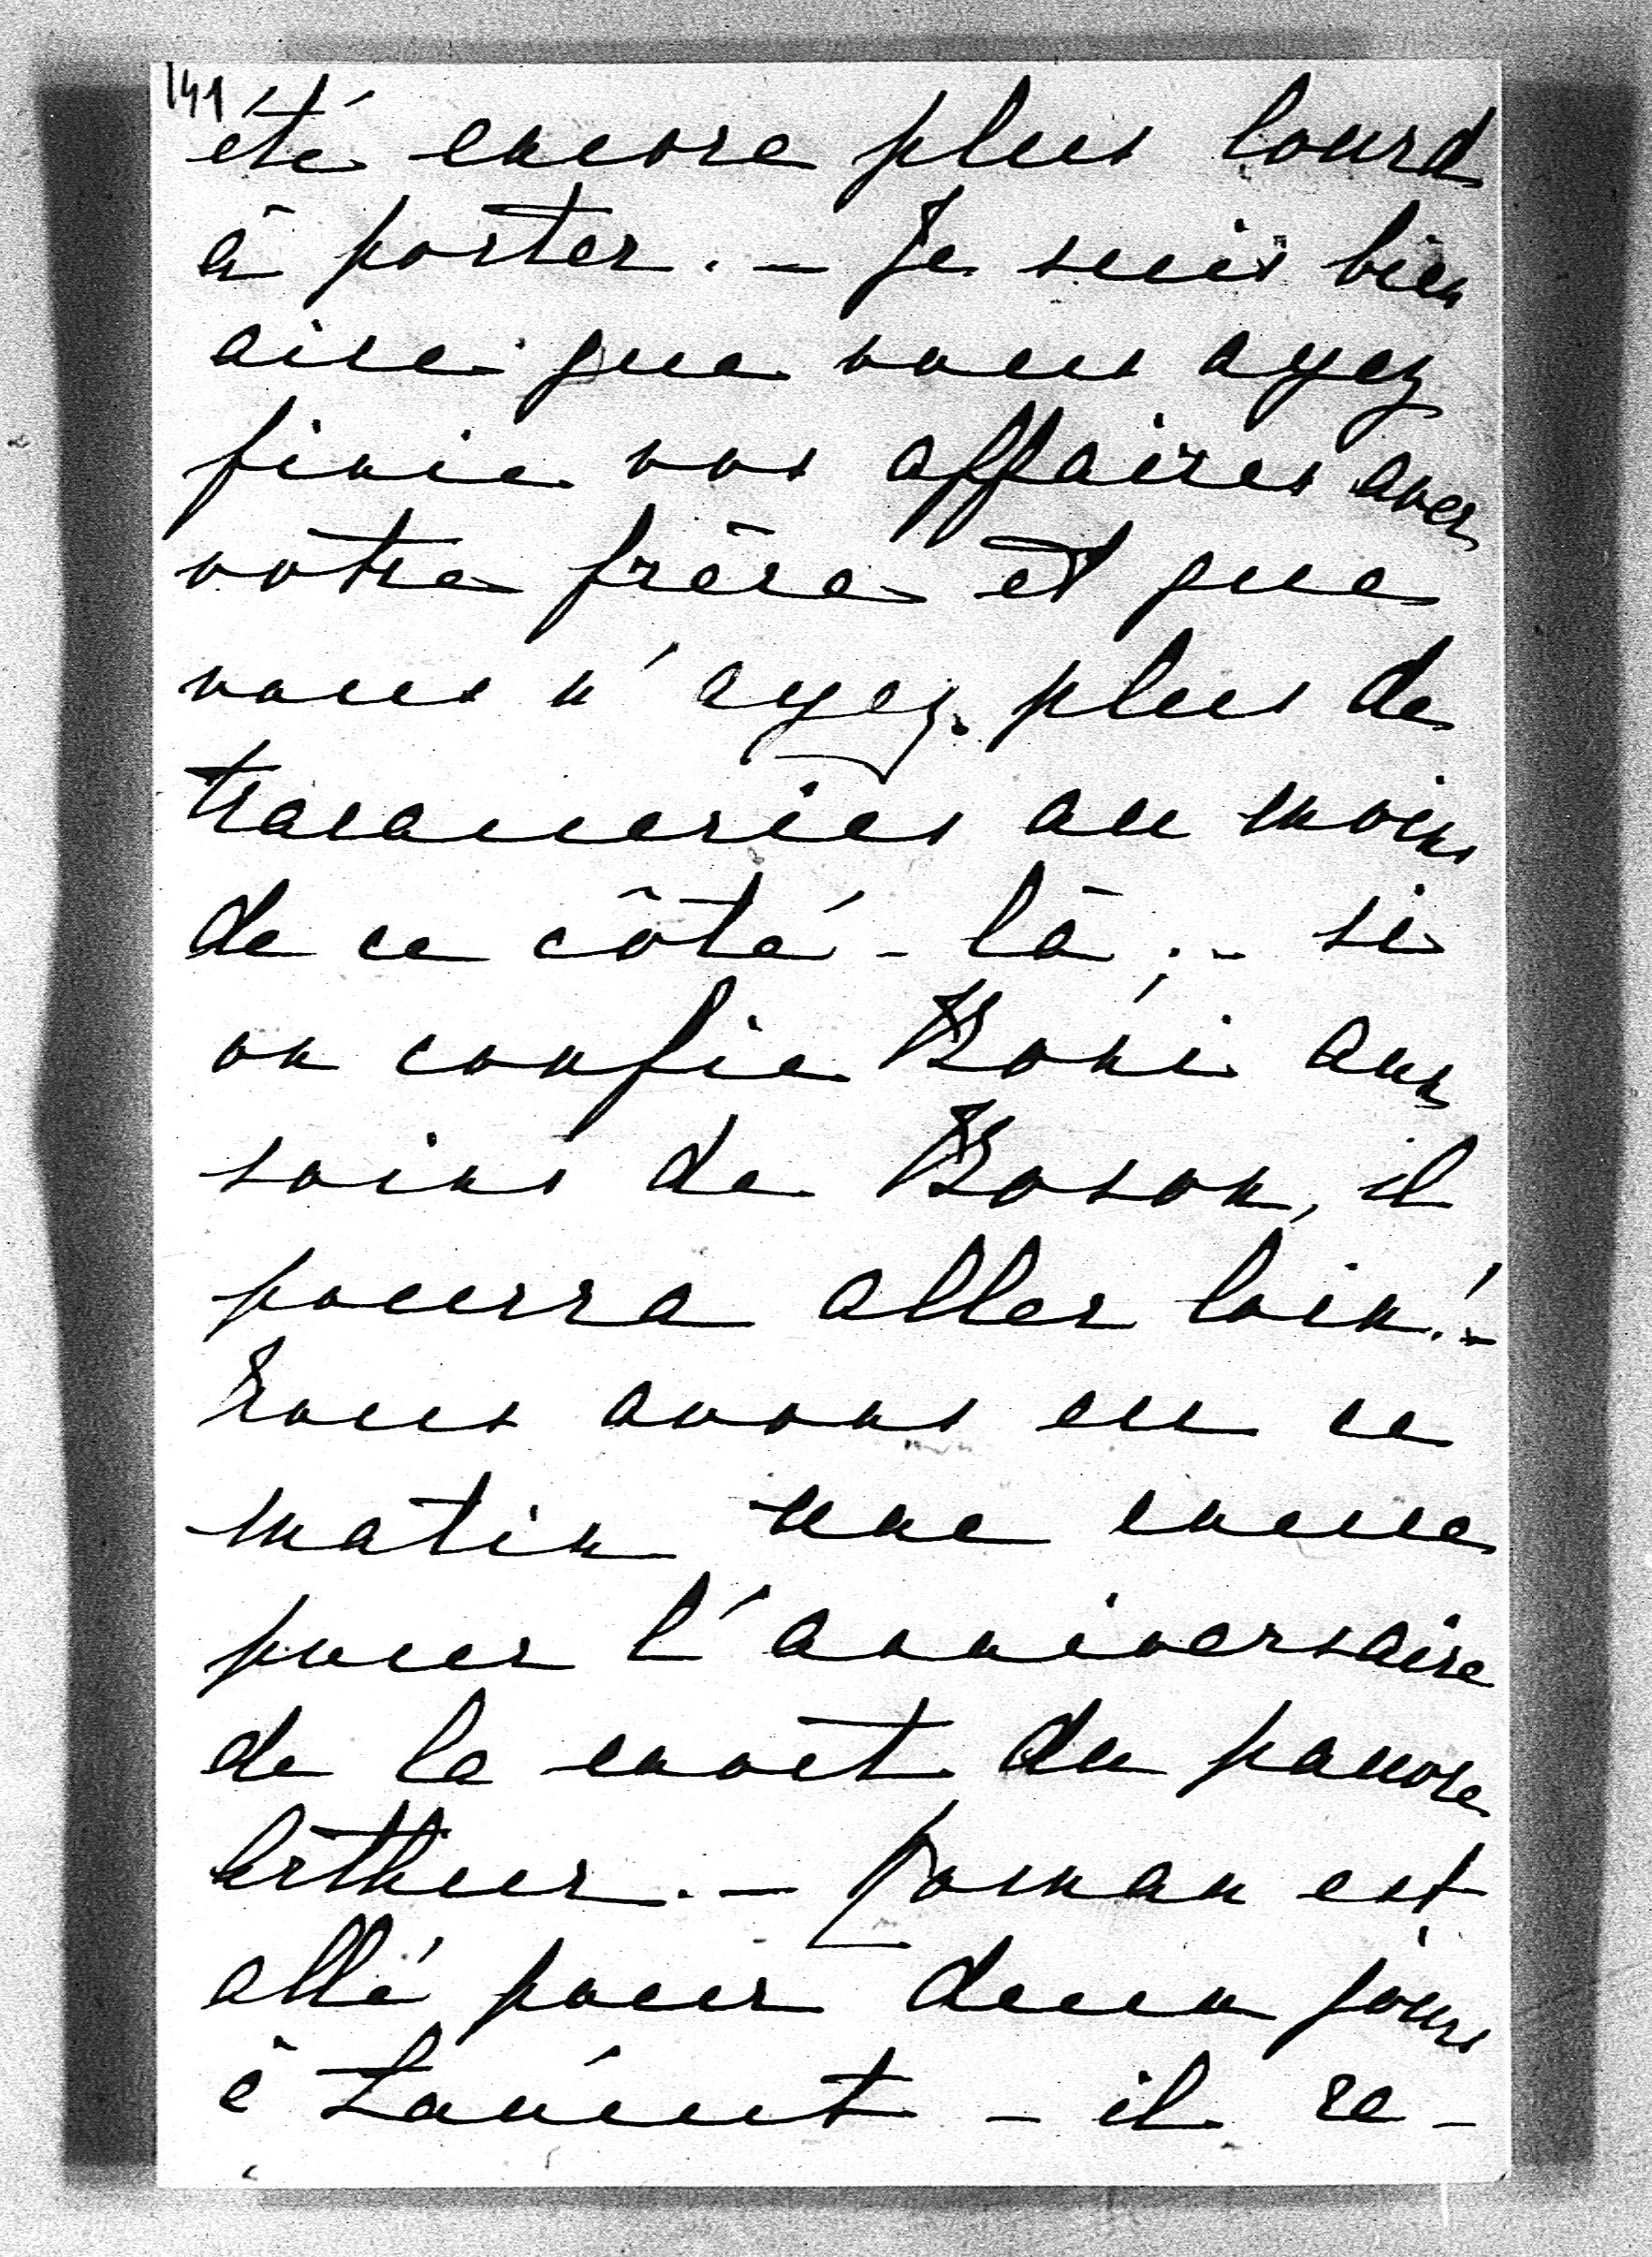 141
été encore plus lourd
à porter. – Je suis bien
aise que vous ayez
finie vos affaires avec
votre frère et que
vous n'ayez plus de
tracasseries au moins
de ce côté-là; – si
on confie Boni aux
soins de Boson, il
pourra aller loin! –
Nous avons eu ce
matin une messe
pour l'anniversaire
de la mort du pauvre
Arthur. – Roman est
allé pour deux jours
à Łańcut – il re-